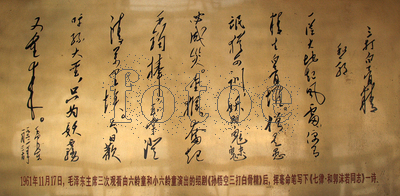 三打白骨精
一从大地起风雷便有
精生白骨堆僧是愚
氓犹可训妖为鬼蜮
必成灾金猴奋起
千钧棒玉宇澄
清万里埃今日欢
呼孙大圣只为妖雾
又重来
1961年11月17日，毛泽东主席三次观看由六龄童和小六龄童演出的绍剧《孙悟空三打白骨精》后，挥毫命笔写下《七律·和郭沫若同志》一诗。
fotoe